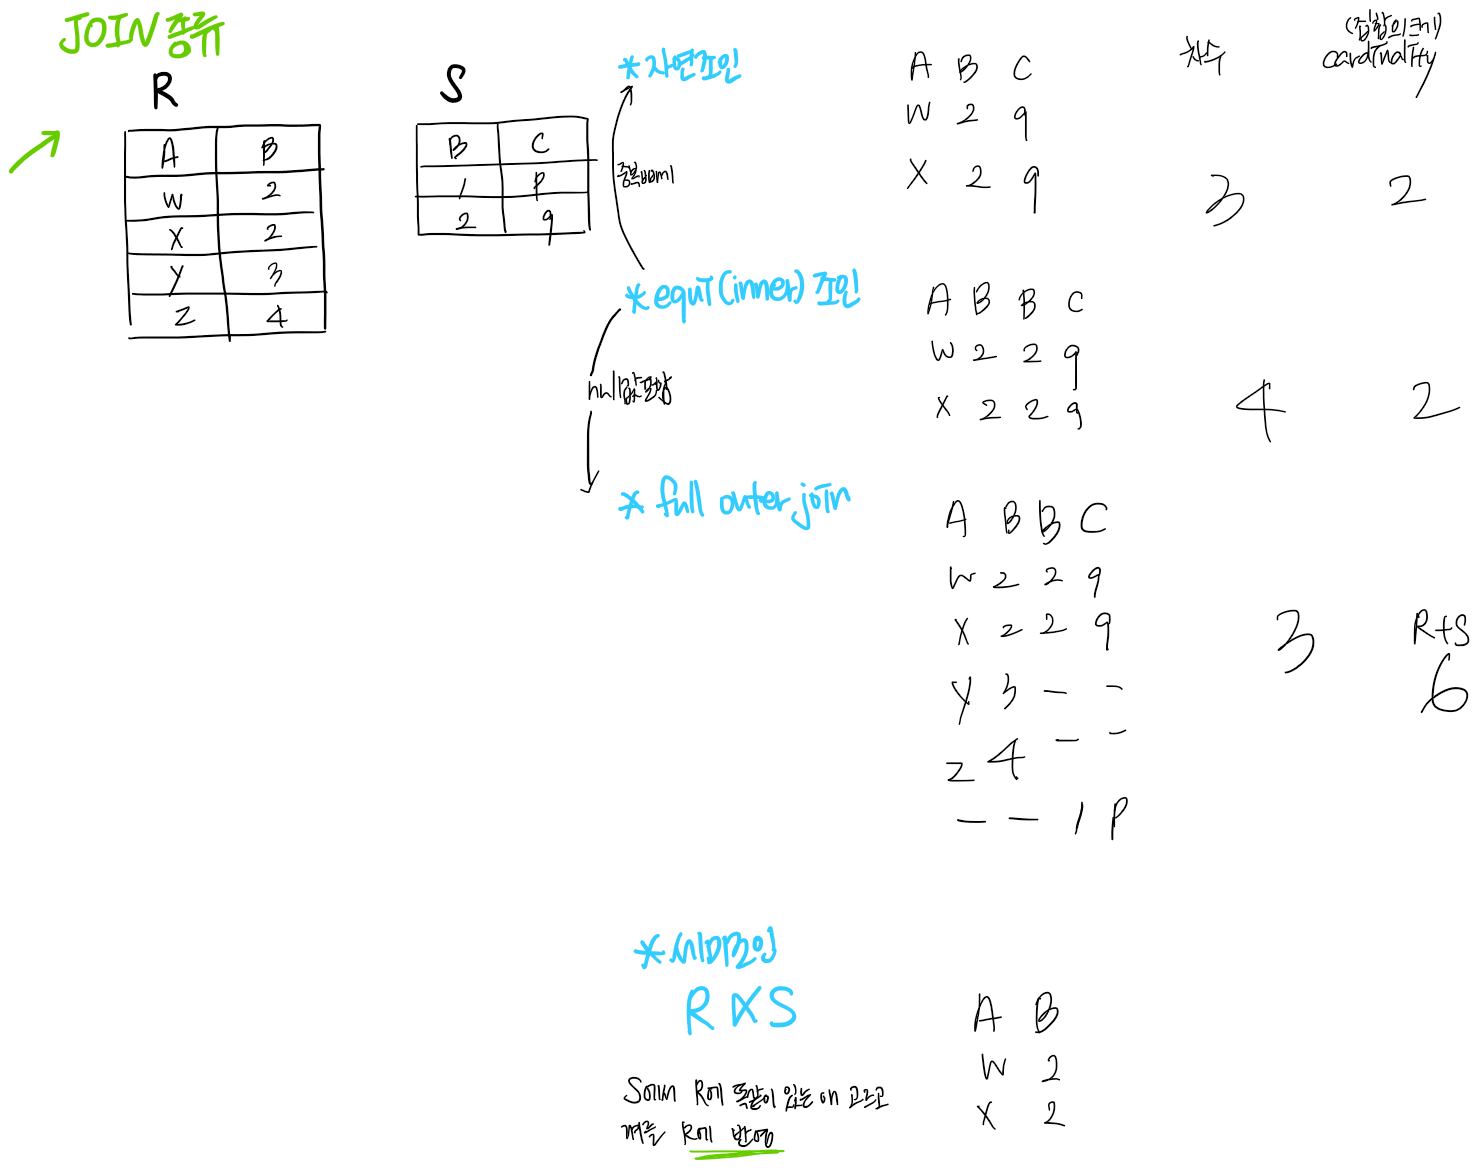 JOIN 종류
R
A B
W 2
X 2
Y 3
Z 4
S
B C
1 P
2 q
차수
(집합의크기)
cardinality
*자연조인
A B C
W 2 q
X 2 q
3
2
중복
*equi(inner) 조인
A B B C
W 2 2 q
X 2 2 q
4
2
null값포함
* full outer join
A B B C
W 2 2 q
X 2 2 q
Y 3 - -
Z 4 - -
- - 1 P
3
R+S
6
*세미조인
R⋉S
A B
W 2
X 2
S에서 R에 똑같이 있는 애 고르고
걔를 R에 반영